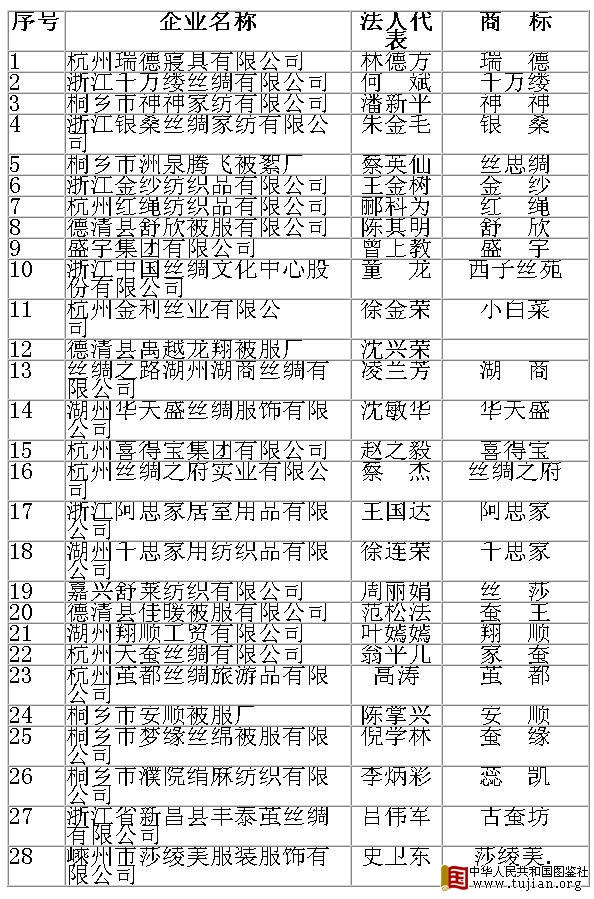 序号 企业名称 法人代表 商 标
1 杭州瑞德寝具有限公司 林德方 瑞 德
2 浙江千万缕丝绸有限公司 何 斌 千万缕
3 桐乡市神神家纺有限公司 潘新平 神 神
4 浙江银桑丝绸家纺有限公司 朱金毛 银 桑
5 桐乡市洲泉腾飞被絮厂 蔡英仙 丝思绸
6 浙江金纱纺织品有限公司 王金树 金 纱
7 杭州红绳纺织品有限公司 郦科为 红 绳
8 德清县舒欣被服有限公司 陈其明 舒 欣
9 盛宇集团有限公司 曾上教 盛 宇
10 浙江中国丝绸文化中心股份有限公司 童 龙 西子丝苑
11 杭州金利丝业有限公司 徐金荣 小白菜
12 德清县禹越龙翔被服厂 沈兴荣
13 丝绸之路湖州湖商丝绸有限公司 凌兰芳 湖 商
14 湖州华天盛丝绸服饰有限公司 沈敏华 华天盛
15 杭州喜得宝集团有限公司 赵之毅 喜得宝
16 杭州丝绸之府实业有限公司 蔡 杰 丝绸之府
17 浙江阿思家居室用品有限公司 王国达 阿思家
18 湖州千思家用纺织品有限公司 徐连荣 千思家
19 嘉兴舒莱纺织有限公司 周丽娟 丝 莎
20 德清县佳暖被服有限公司 范松法 蚕 王
21 湖州翔顺工贸有限公司 叶嫣嫣 翔 顺
22 杭州天蚕丝绸有限公司 翁平儿 家 蚕
23 杭州茧都丝绸旅游品有限公司 高涛 茧 都
24 桐乡市安顺被服厂 陈掌兴 安 顺
25 桐乡市梦缘丝绵被服有限公司 倪学林 蚕 缘
26 桐乡市濮院绢麻纺织有限公司 李炳彩 蕊 凯
27 浙江省新昌县丰泰茧丝绸有限公司 吕伟军 古蚕坊
28 嵊州市莎绫美服装服饰有限公司 史卫东 莎绫美.
国 中华人民共和国图鉴社
www.tujian.org